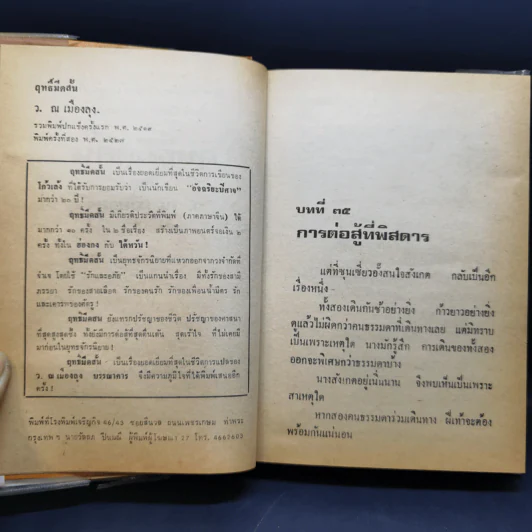 ฤทธิ์มีดสั้น
ว. ณ เมืองลุง
รวมพิมพ์ปกแข็งครั้งแรก พ.ศ. ๒๕๑๙
พิมพ์ครั้งที่สอง พ.ศ. ๒๕๒๗
ฤทธิ์มีดสั้น เป็นเรื่องยอดเยี่ยมที่สุดในชีวิตการเขียนของ
โก้วเล้ง ที่ได้รับการยอมรับว่า เป็นนักเขียน "อัจฉริยะปีศาจ"
มากว่า ๒๐ ปี !
ฤทธิ์มีดสั้น มีเกียรติประวัติที่พิมพ์ (ภาคภาษาจีน) ได้
มากกว่า ๑๐ ครั้ง ใน ๒ ชื่อเรื่อง สร้างเป็นภาพยนตร์จอเงิน ๒
ครั้ง ทั้งใน ฮ่องกง กับ ไต้หวัน !
ฤทธิ์มีดสั้น เป็นยุทธจักรนิยายที่แหวกออกจากวงจำกัดที่
จำเจ โดยใช้ "รักและอภัย" เป็นแกนนำเรื่อง มีทั้งรักของสามี
ภรรยา รักของสายเลือก รักของคนรัก รักของเพื่อนน้ำมิตร รัก
และเคารพของศัตรู !
ฤทธิ์มีดสั้น ยังแทรกปรัชญาของชีวิต ปรัชญาของศาสนา
ที่สูงสุดสุดซึ้ง ทั้งยังมีการต่อสู้ที่สุดตื่นเต้น สุดเร้าใจ ที่ไม่เคยมี
มาก่อนในยุทธจักรนิยาย !
ฤทธิ์มีดสั้น เป็นเรื่องยอดเยี่ยมที่สุดในชีวิตการแปลของ
ว. ณ เมืองลุง บรรณาคาร จึงมีความภูมิใจที่ได้พิมพ์เสนออีก
ครั้ง !
พิมพ์ที่โรงพิมพ์เจริญกิจ 46/43 ซอยสีนวล ถนนเพชรเกษม ท่าพระ
กรุงเทพ ฯ นายวัลลภ ปิ่นมณี ผู้พิมพ์ผู้โฆษณา โทร. 4667603
บทที่ ๓๕
การต่อสู้ที่พิสดาร
แต่ที่ซุนเซี่ยวอั้งสนใจสังเกต กลับเป็นอีก
เรื่องหนึ่ง
ทั้งสองเดินกันช้าอย่างยิ่ง ก้าวยาวอย่างยิ่ง
ดูแล้วไม่ผิดกว่าคนธรรมดาที่เดินทางเลย แต่มิทราบ
เป็นเพราะเหตุใด นางมักรู้สึก การเดินของทั้งสอง
ออกจะพิเศษกว่าธรรมดาบ้าง
นางสังเกตอยู่เนิ่นนาน จึงพบเห็นเป็นเพราะ
สาเหตุใด
หากสองคนธรรมดาร่วมเดินทาง ฝีเท้าจะต้อง
พร้อมกันแน่นอน